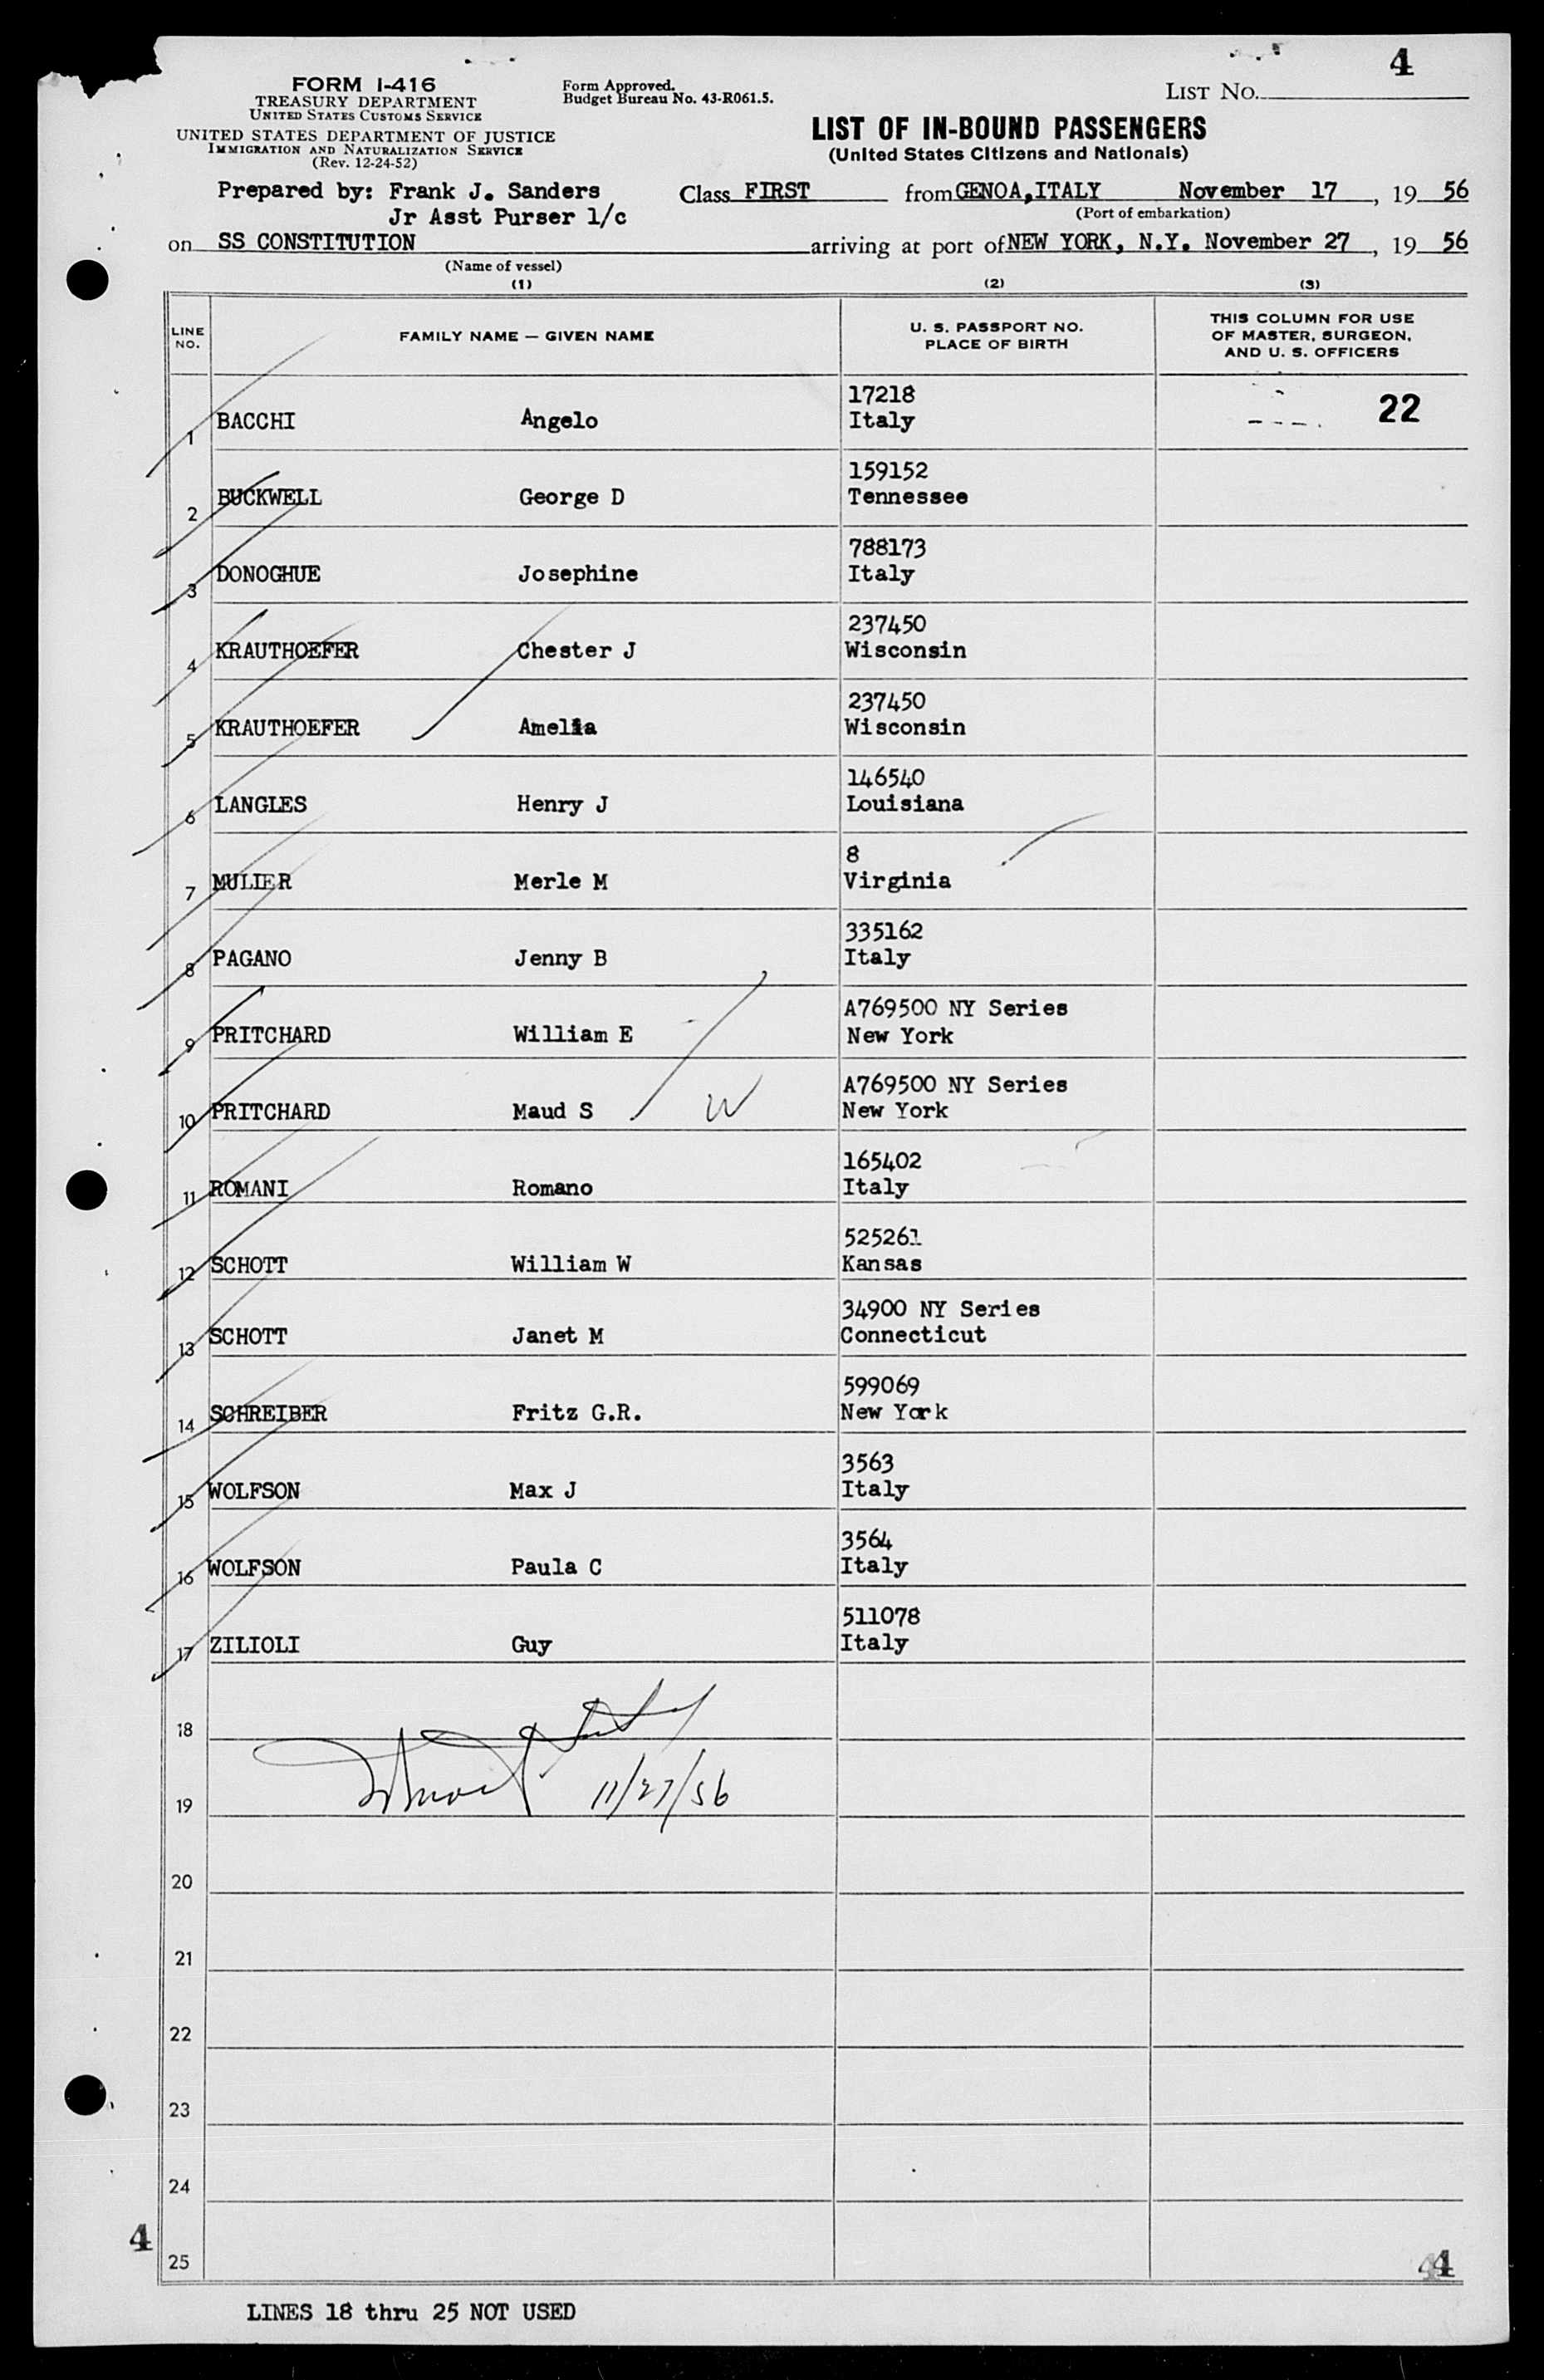 4
FORM I-416
TREASURY DEPARTMENT
UNITED STATES CUSTOMS SERVICE
UNITED STATES DEPARTMENT OF JUSTICE
IMMIGRATION AND NATURALIZATION SERVICE
(Rev. 12-24-52)
Form Approved.
Budget Bureau No. 43-R061.5.
LIST NO.
LIST OF IN-BOUND PASSENGERS
(United States Citizens and Nationals)
Prepared by: Frank J. Sanders
Jr Asst Purser 1/c
Class FIRST from GENOA, ITALY November 17, 19 56
(Port of embarkation)
on SS CONSTITUTION arriving at port of NEW YORK, N.Y. November 27, 19 56
(Name of vessel)
(1) (2) (3)
LINE NO. FAMILY NAME — GIVEN NAME U. S. PASSPORT NO. PLACE OF BIRTH THIS COLUMN FOR USE OF MASTER, SURGEON, AND U. S. OFFICERS
17218 22
1 BACCHI Angelo Italy
159152
2 BUCKWELL George D Tennessee
788173
3 DONOGHUE Josephine Italy
237450
4 KRAUTHOEFER Chester J Wisconsin
237450
5 KRAUTHOEFER Amelia Wisconsin
146540
6 LANGLES Henry J Louisiana
8
7 MULIER Merle M Virginia
335162
8 PAGANO Jenny B Italy
A769500 NY Series
9 PRITCHARD William E New York
A769500 NY Series
10 PRITCHARD Maud S W New York
165402
11 ROMANI Romano Italy
525261
12 SCHOTT William W Kansas
34900 NY Series
13 SCHOTT Janet M Connecticut
599069
14 SCHREIBER Fritz G.R. New York
3563
15 WOLFSON Max J Italy
3564
16 WOLFSON Paula C Italy
511078
17 ZILIOLI Guy Italy
18
19 11/27/56
20
21
22
23
24
4
25 44
LINES 18 thru 25 NOT USED